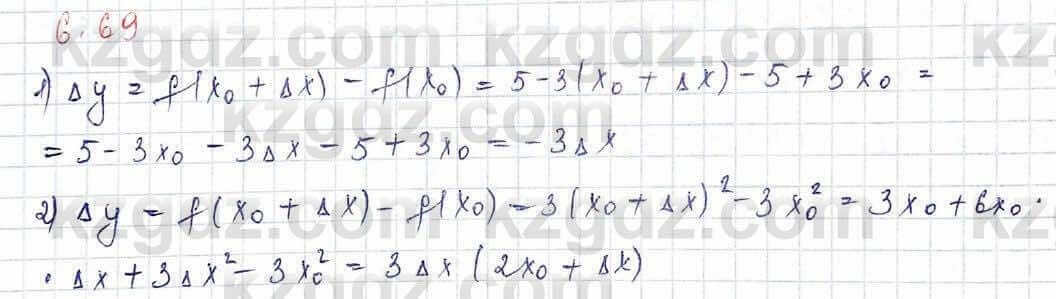 6.69
1) Δy = f(x₀ + Δx) - f(x₀) = 5 - 3(x₀ + Δx) - 5 + 3x₀ =
= 5 - 3x₀ - 3Δx - 5 + 3x₀ = -3Δx
2) Δy = f(x₀ + Δx) - f(x₀) = 3(x₀ + Δx)² - 3x₀² = 3x₀ + 6x₀ ·
· Δx + 3Δx² - 3x₀² = 3Δx (2x₀ + Δx)
kzgdz.com
kzgdz.com
kzgdz.com
kzgdz.com